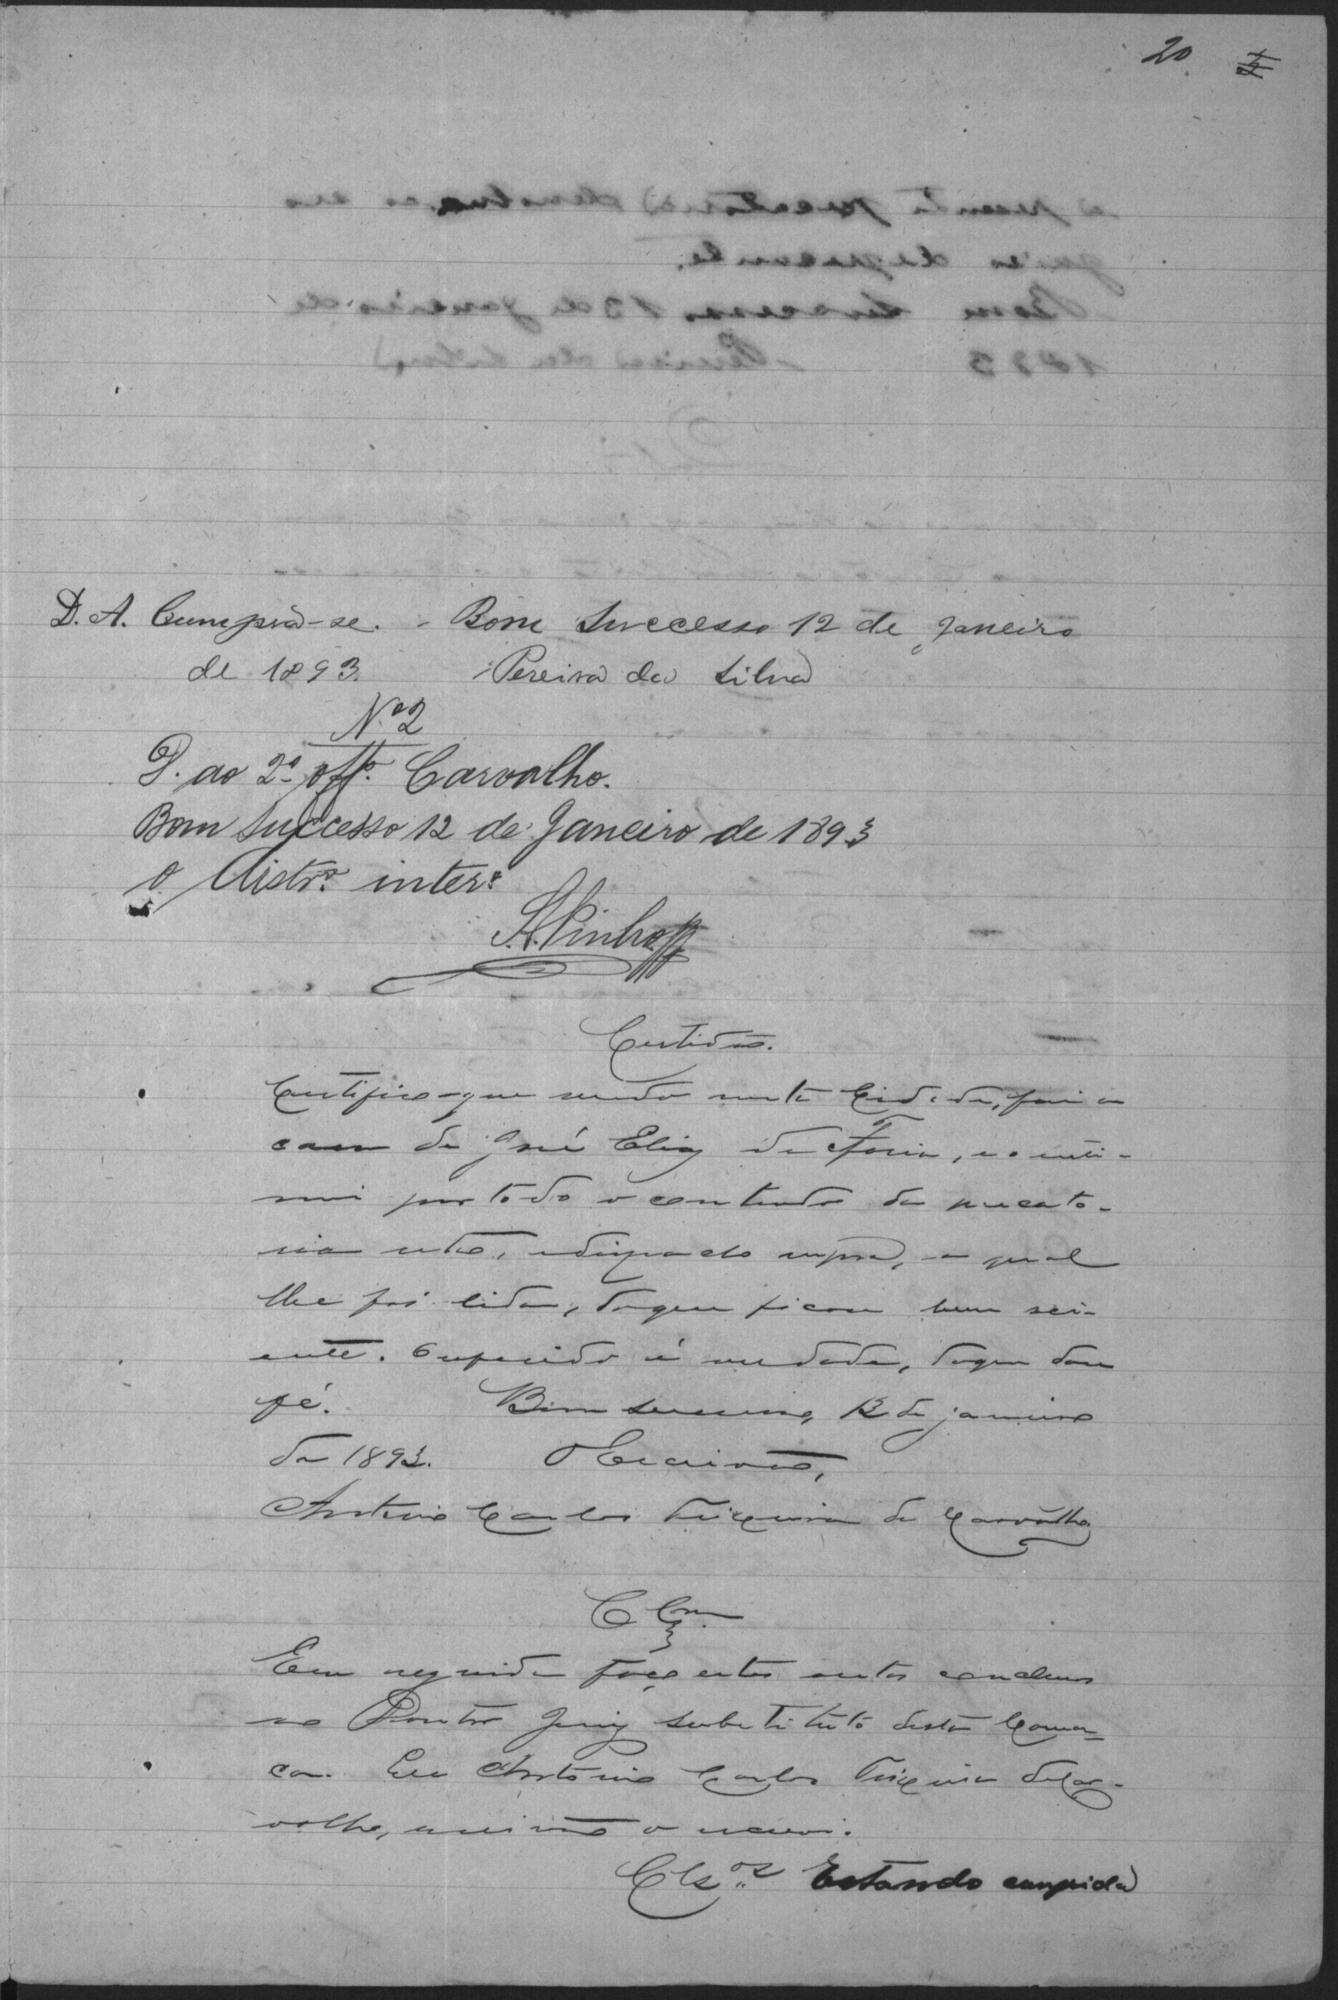 20
D. A. Cumpra-se. - Bom Successo 12 de Janeiro
de 1893. Pereira da Silva
N.º 2
D. ao 2º off.º Carvalho.
Bom Successo 12 de Janeiro de 1893
O Distr.º inter.º
A. Pinho
Certidão.
Certifico que sendo nesta Cidade, fui a
casa de José Elias de Faria, e o inti-
mei por todo o contendo da precato-
ria retro, e despacho supra, a qual
lhe foi lida, do que ficou bem sci-
ente. O referido é verdade, do que dou
fé. Bom Successo, 12 de janeiro
de 1893. O Escrivão,
Antonio Carlos Teixeira de Carvalho
Clm.
Em seguida faço estes autos conclusos
ao Doutor Juiz substituto desta Comar-
ca. Eu Antonio Carlos Teixeira de Car-
valho, escrivão o escrevi.
Cls.os Estando cumprida